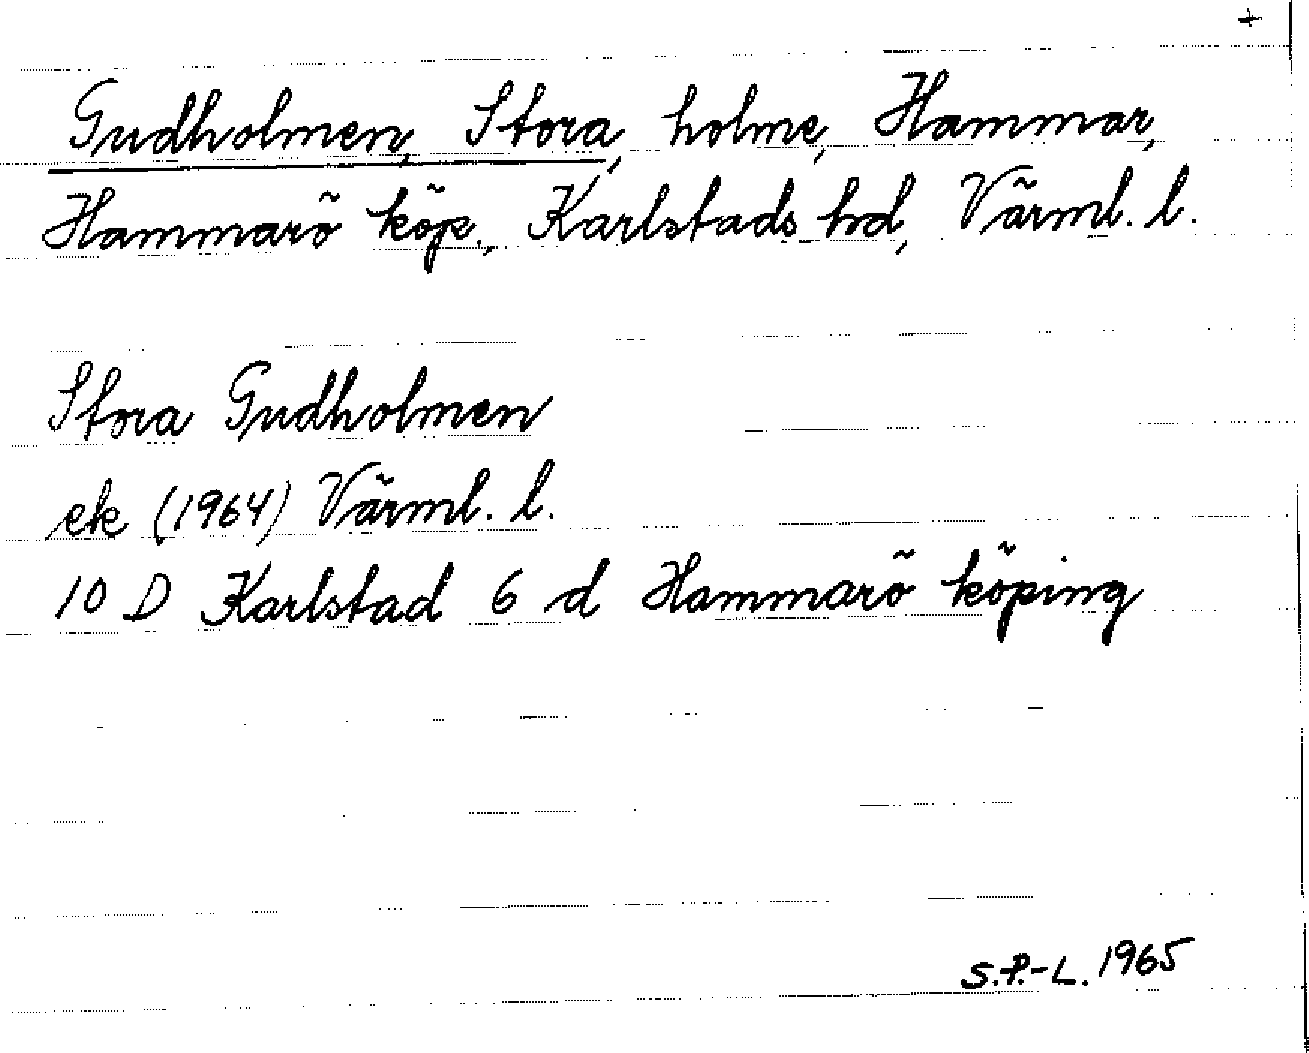 +
Gudholmen, Stora, holme, Hammar,
Hammarö köp., Karlstads hd, Värml. l.
Stora Gudholmen
ek (1964) Värml. l.
10 D Karlstad 6 d Hammarö köping
S.P.-L. 1965